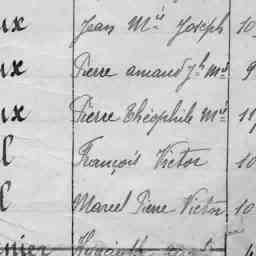 ux Jean Mie Joseph 10
ux Pierre amand Jh Mie 9
ux Pierre théophile Mie
l François Victor 10
l Marcel Pierre Victor 10
nier